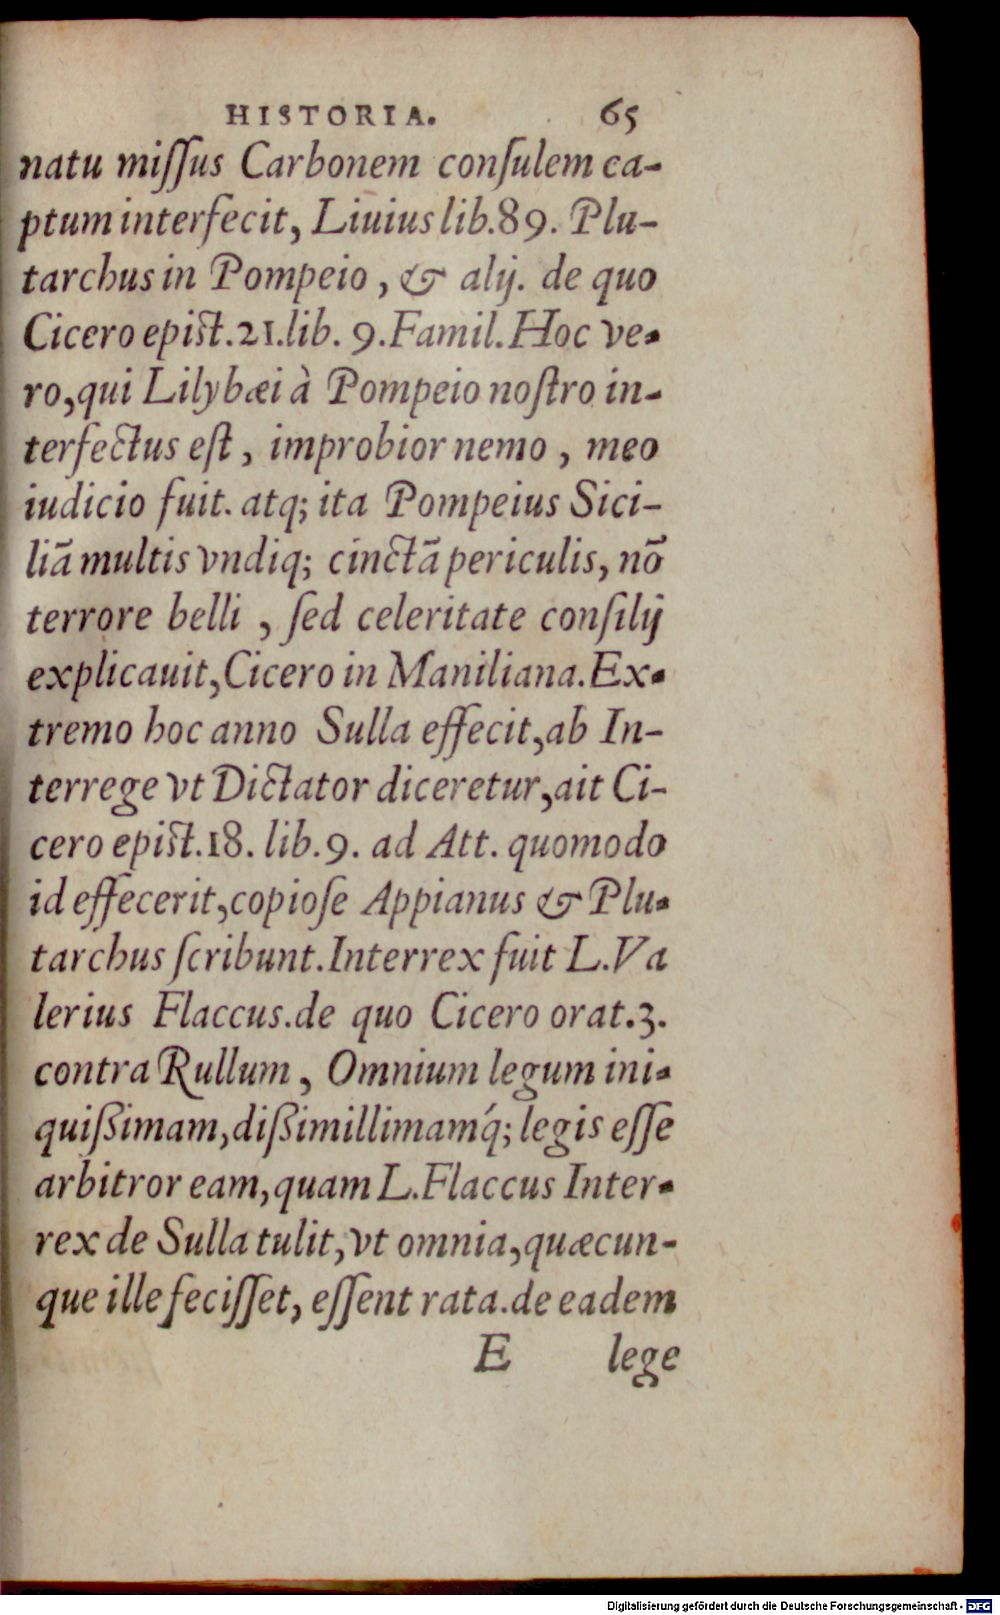 HISTORIA. 65
natu miſſus Carbonem conſulem ca-
ptum interfecit, Liuius lib.89. Plu-
tarchus in Pompeio, & alij. de quo
Cicero epiſt.21.lib. 9.Famil.Hoc ve-
ro,qui Lilybæi à Pompeio noſtro in-
terfectus eſt, improbior nemo, meo
iudicio fuit. atq; ita Pompeius Sici-
liā multis vndiq; cinctā periculis, nō
terrore belli, ſed celeritate conſilij
explicauit,Cicero in Maniliana.Ex-
tremo hoc anno Sulla effecit,ab In-
terrege vt Dictator diceretur,ait Ci-
cero epiſt.18. lib.9. ad Att. quomodo
id effecerit,copioſe Appianus & Plu-
tarchus ſcribunt.Interrex fuit L.Va
lerius Flaccus.de quo Cicero orat.3.
contra Rullum, Omnium legum ini-
quiſsimam,diſsimillimamq́; legis eſſe
arbitror eam,quam L.Flaccus Inter-
rex de Sulla tulit,vt omnia,quæcun-
que ille feciſſet, eſſent rata.de eadem
E lege
Digitalisierung gefördert durch die Deutsche Forschungsgemeinschaft - DFG